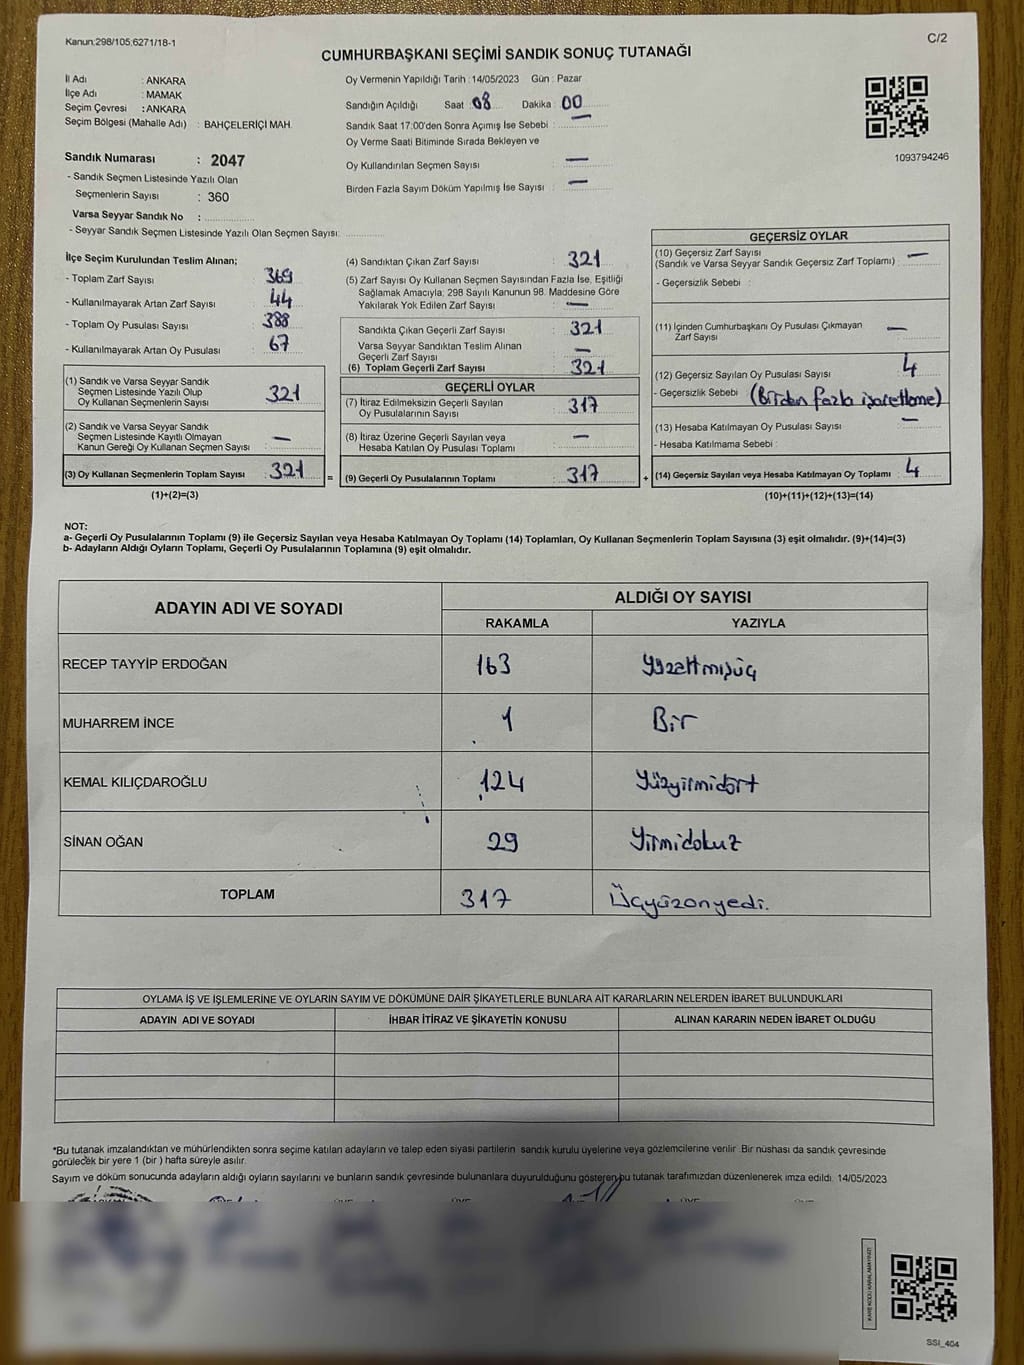 Kanun:298/105,6271/18-1
C/2
CUMHURBAŞKANI SEÇİMİ SANDIK SONUÇ TUTANAĞI
İl Adı : ANKARA
İlçe Adı : MAMAK
Seçim Çevresi : ANKARA
Seçim Bölgesi (Mahalle Adı) : BAHÇELERİÇİ MAH.
Sandık Numarası : 2047
- Sandık Seçmen Listesinde Yazılı Olan
Seçmenlerin Sayısı : 360
Varsa Seyyar Sandık No :
- Seyyar Sandık Seçmen Listesinde Yazılı Olan Seçmen Sayısı:
Oy Vermenin Yapıldığı Tarih :14/05/2023 Gün : Pazar
Sandığın Açıldığı Saat 08 Dakika 00
Sandık Saat 17:00'den Sonra Açımış İse Sebebi : —
Oy Verme Saati Bitiminde Sırada Bekleyen ve
Oy Kullandırılan Seçmen Sayısı : —
Birden Fazla Sayım Döküm Yapılmış İse Sayısı : —
1093794246
İlçe Seçim Kurulundan Teslim Alınan;
- Toplam Zarf Sayısı : 369
- Kullanılmayarak Artan Zarf Sayısı : 44
- Toplam Oy Pusulası Sayısı : 388
- Kullanılmayarak Artan Oy Pusulası : 67
(1) Sandık ve Varsa Seyyar Sandık
Seçmen Listesinde Yazılı Olup
Oy Kullanan Seçmenlerin Sayısı : 321
(2) Sandık ve Varsa Seyyar Sandık
Seçmen Listesinde Kayıtlı Olmayan
Kanun Gereği Oy Kullanan Seçmen Sayısı : —
(3) Oy Kullanan Seçmenlerin Toplam Sayısı : 321
(1)+(2)=(3)
=
(4) Sandıktan Çıkan Zarf Sayısı : 321
(5) Zarf Sayısı Oy Kullanan Seçmen Sayısından Fazla İse, Eşitliği
Sağlamak Amacıyla; 298 Sayılı Kanunun 98. Maddesine Göre
Yakılarak Yok Edilen Zarf Sayısı : —
Sandıkta Çıkan Geçerli Zarf Sayısı : 321
Varsa Seyyar Sandıktan Teslim Alınan
Geçerli Zarf Sayısı : —
(6) Toplam Geçerli Zarf Sayısı : 321
GEÇERLİ OYLAR
(7) İtiraz Edilmeksizin Geçerli Sayılan
Oy Pusulalarının Sayısı : 317
(8) İtiraz Üzerine Geçerli Sayılan veya
Hesaba Katılan Oy Pusulası Toplamı : —
(9) Geçerli Oy Pusulalarının Toplamı : 317
+
GEÇERSİZ OYLAR
(10) Geçersiz Zarf Sayısı
(Sandık ve Varsa Seyyar Sandık Geçersiz Zarf Toplamı) : —
- Geçersizlik Sebebi :
(11) İçinden Cumhurbaşkanı Oy Pusulası Çıkmayan
Zarf Sayısı : —
(12) Geçersiz Sayılan Oy Pusulası Sayısı : 4
- Geçersizlik Sebebi : (Birden fazla işaretleme)
(13) Hesaba Katılmayan Oy Pusulası Sayısı : —
- Hesaba Katılmama Sebebi :
(14) Geçersiz Sayılan veya Hesaba Katılmayan Oy Toplamı : 4
(10)+(11)+(12)+(13)=(14)
NOT:
a- Geçerli Oy Pusulalarının Toplamı (9) ile Geçersiz Sayılan veya Hesaba Katılmayan Oy Toplamı (14) Toplamları, Oy Kullanan Seçmenlerin Toplam Sayısına (3) eşit olmalıdır. (9)+(14)=(3)
b- Adayların Aldığı Oyların Toplamı, Geçerli Oy Pusulalarının Toplamına (9) eşit olmalıdır.
ADAYIN ADI VE SOYADI ALDIĞI OY SAYISI
RAKAMLA YAZIYLA
RECEP TAYYİP ERDOĞAN 163 Yüzaltmışüç
MUHARREM İNCE 1 Bir
KEMAL KILIÇDAROĞLU 124 Yüzyirmidört
SİNAN OĞAN 29 Yirmidokuz
TOPLAM 317 Üçyüzonyedi.
OYLAMA İŞ VE İŞLEMLERİNE VE OYLARIN SAYIM VE DÖKÜMÜNE DAİR ŞİKAYETLERLE BUNLARA AİT KARARLARIN NELERDEN İBARET BULUNDUKLARI
ADAYIN ADI VE SOYADI İHBAR İTİRAZ VE ŞİKAYETİN KONUSU ALINAN KARARIN NEDEN İBARET OLDUĞU
*Bu tutanak imzalandıktan ve mühürlendikten sonra seçime katılan adayların ve talep eden siyasi partilerin sandık kurulu üyelerine veya gözlemcilerine verilir .Bir nüshası da sandık çevresinde
görülecek bir yere 1 (bir ) hafta süreyle asılır.
Sayım ve döküm sonucunda adayların aldığı oyların sayılarını ve bunların sandık çevresinde bulunanlara duyurulduğunu gösteren bu tutanak tarafımızdan düzenlenerek imza edildi. 14/05/2023
KARE KODU KARALAMAYINIZ!
SSI_404